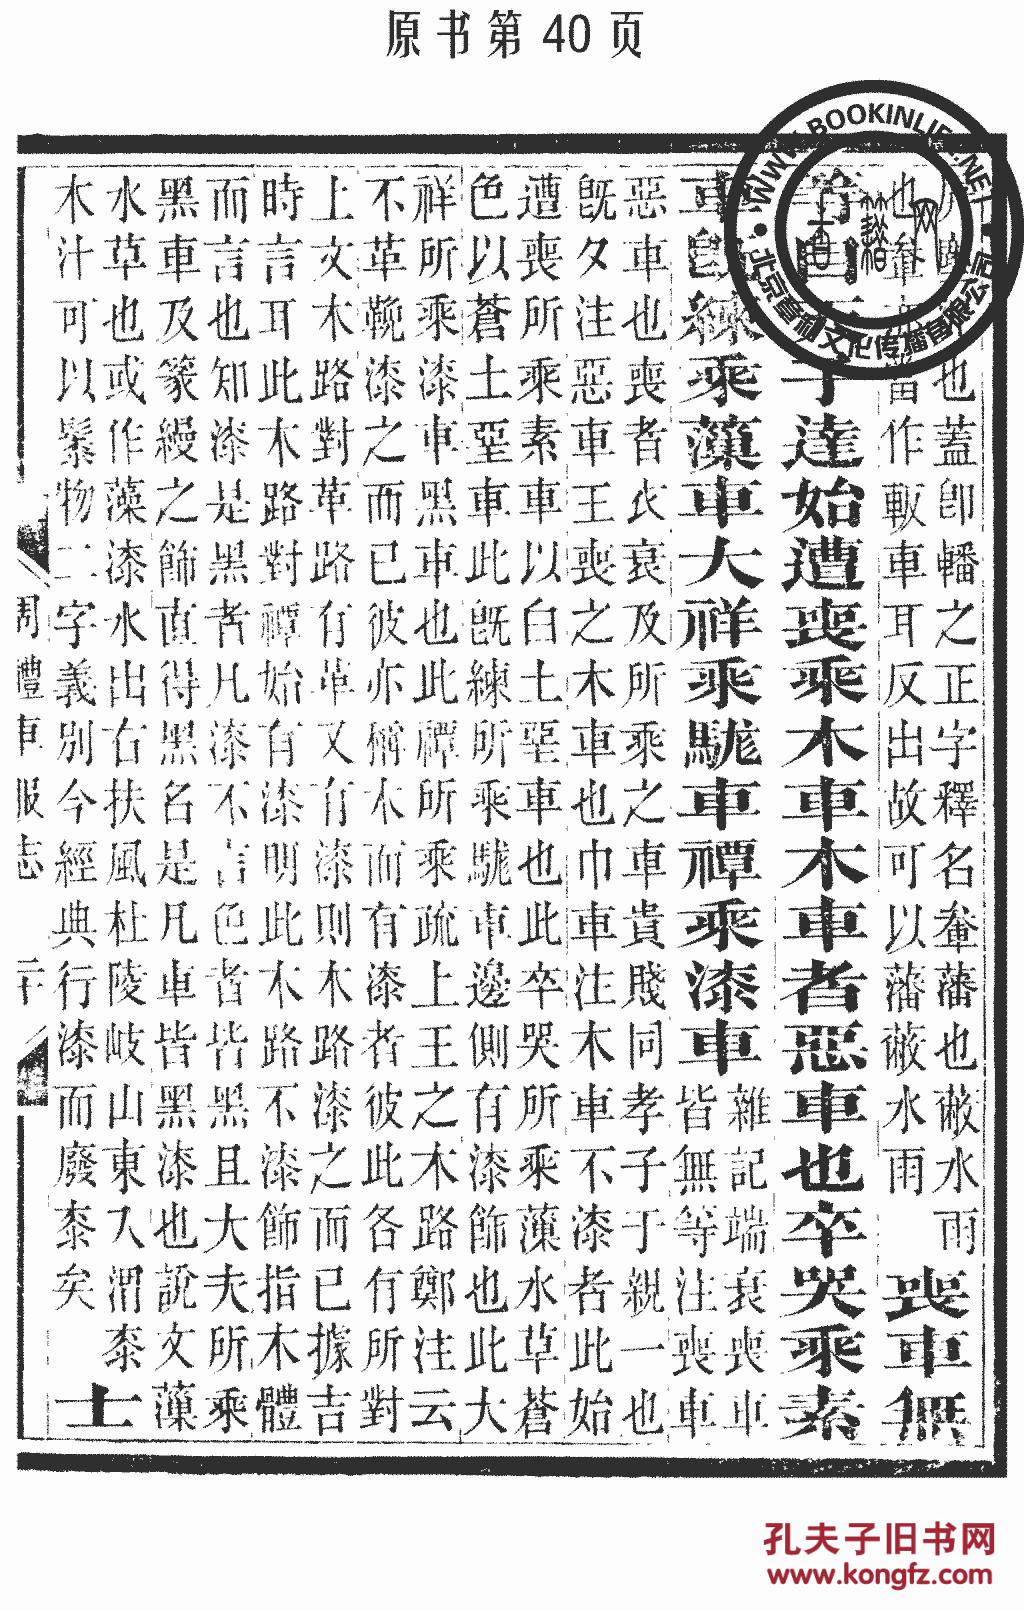 原书第 40 页
WWW.BOOKINLIFE.NET
北京首知文化传播有限公司
也蓋卽轓之正字釋名軬藩也蔽水雨
當作䡊車耳反出故可以藩蔽水雨
喪車無
子達始遭喪乘木車木車者惡車也卒哭乘素
車旣練乘薻車大祥乘駹車禫乘漆車
雜記端衰喪車
皆無等注喪車
惡車也喪者衣衰及所乘之車貴賤同孝子于親一也
旣夕注惡車王喪之木車也巾車注木車不漆者此始
遭喪所乘素車以白土堊車也此卒哭所乘薻水草蒼
色以蒼土堊車此旣練所乘駹車邊側有漆飾也此大
祥所乘漆車黑車也此禫所乘疏上王之木路鄭注云
不革鞔漆之而已彼亦稱木而有漆者彼此各有所對
上文木路對革路有革又有漆則木路漆之而已據吉
時言耳此木路對禫始有漆明此木路不漆飾指木體
而言也知漆是黑者凡漆不言色者皆黑且大夫所乘
黑車及篆縵之飾直得黑名是凡車皆黑漆也說文薻
水草也或作藻漆水出右扶風杜陵岐山東入渭桼
木汁可以䰍物二字義別今經典行漆而廢桼矣 士
周禮車服志
孔夫子旧书网
www.kongfz.com